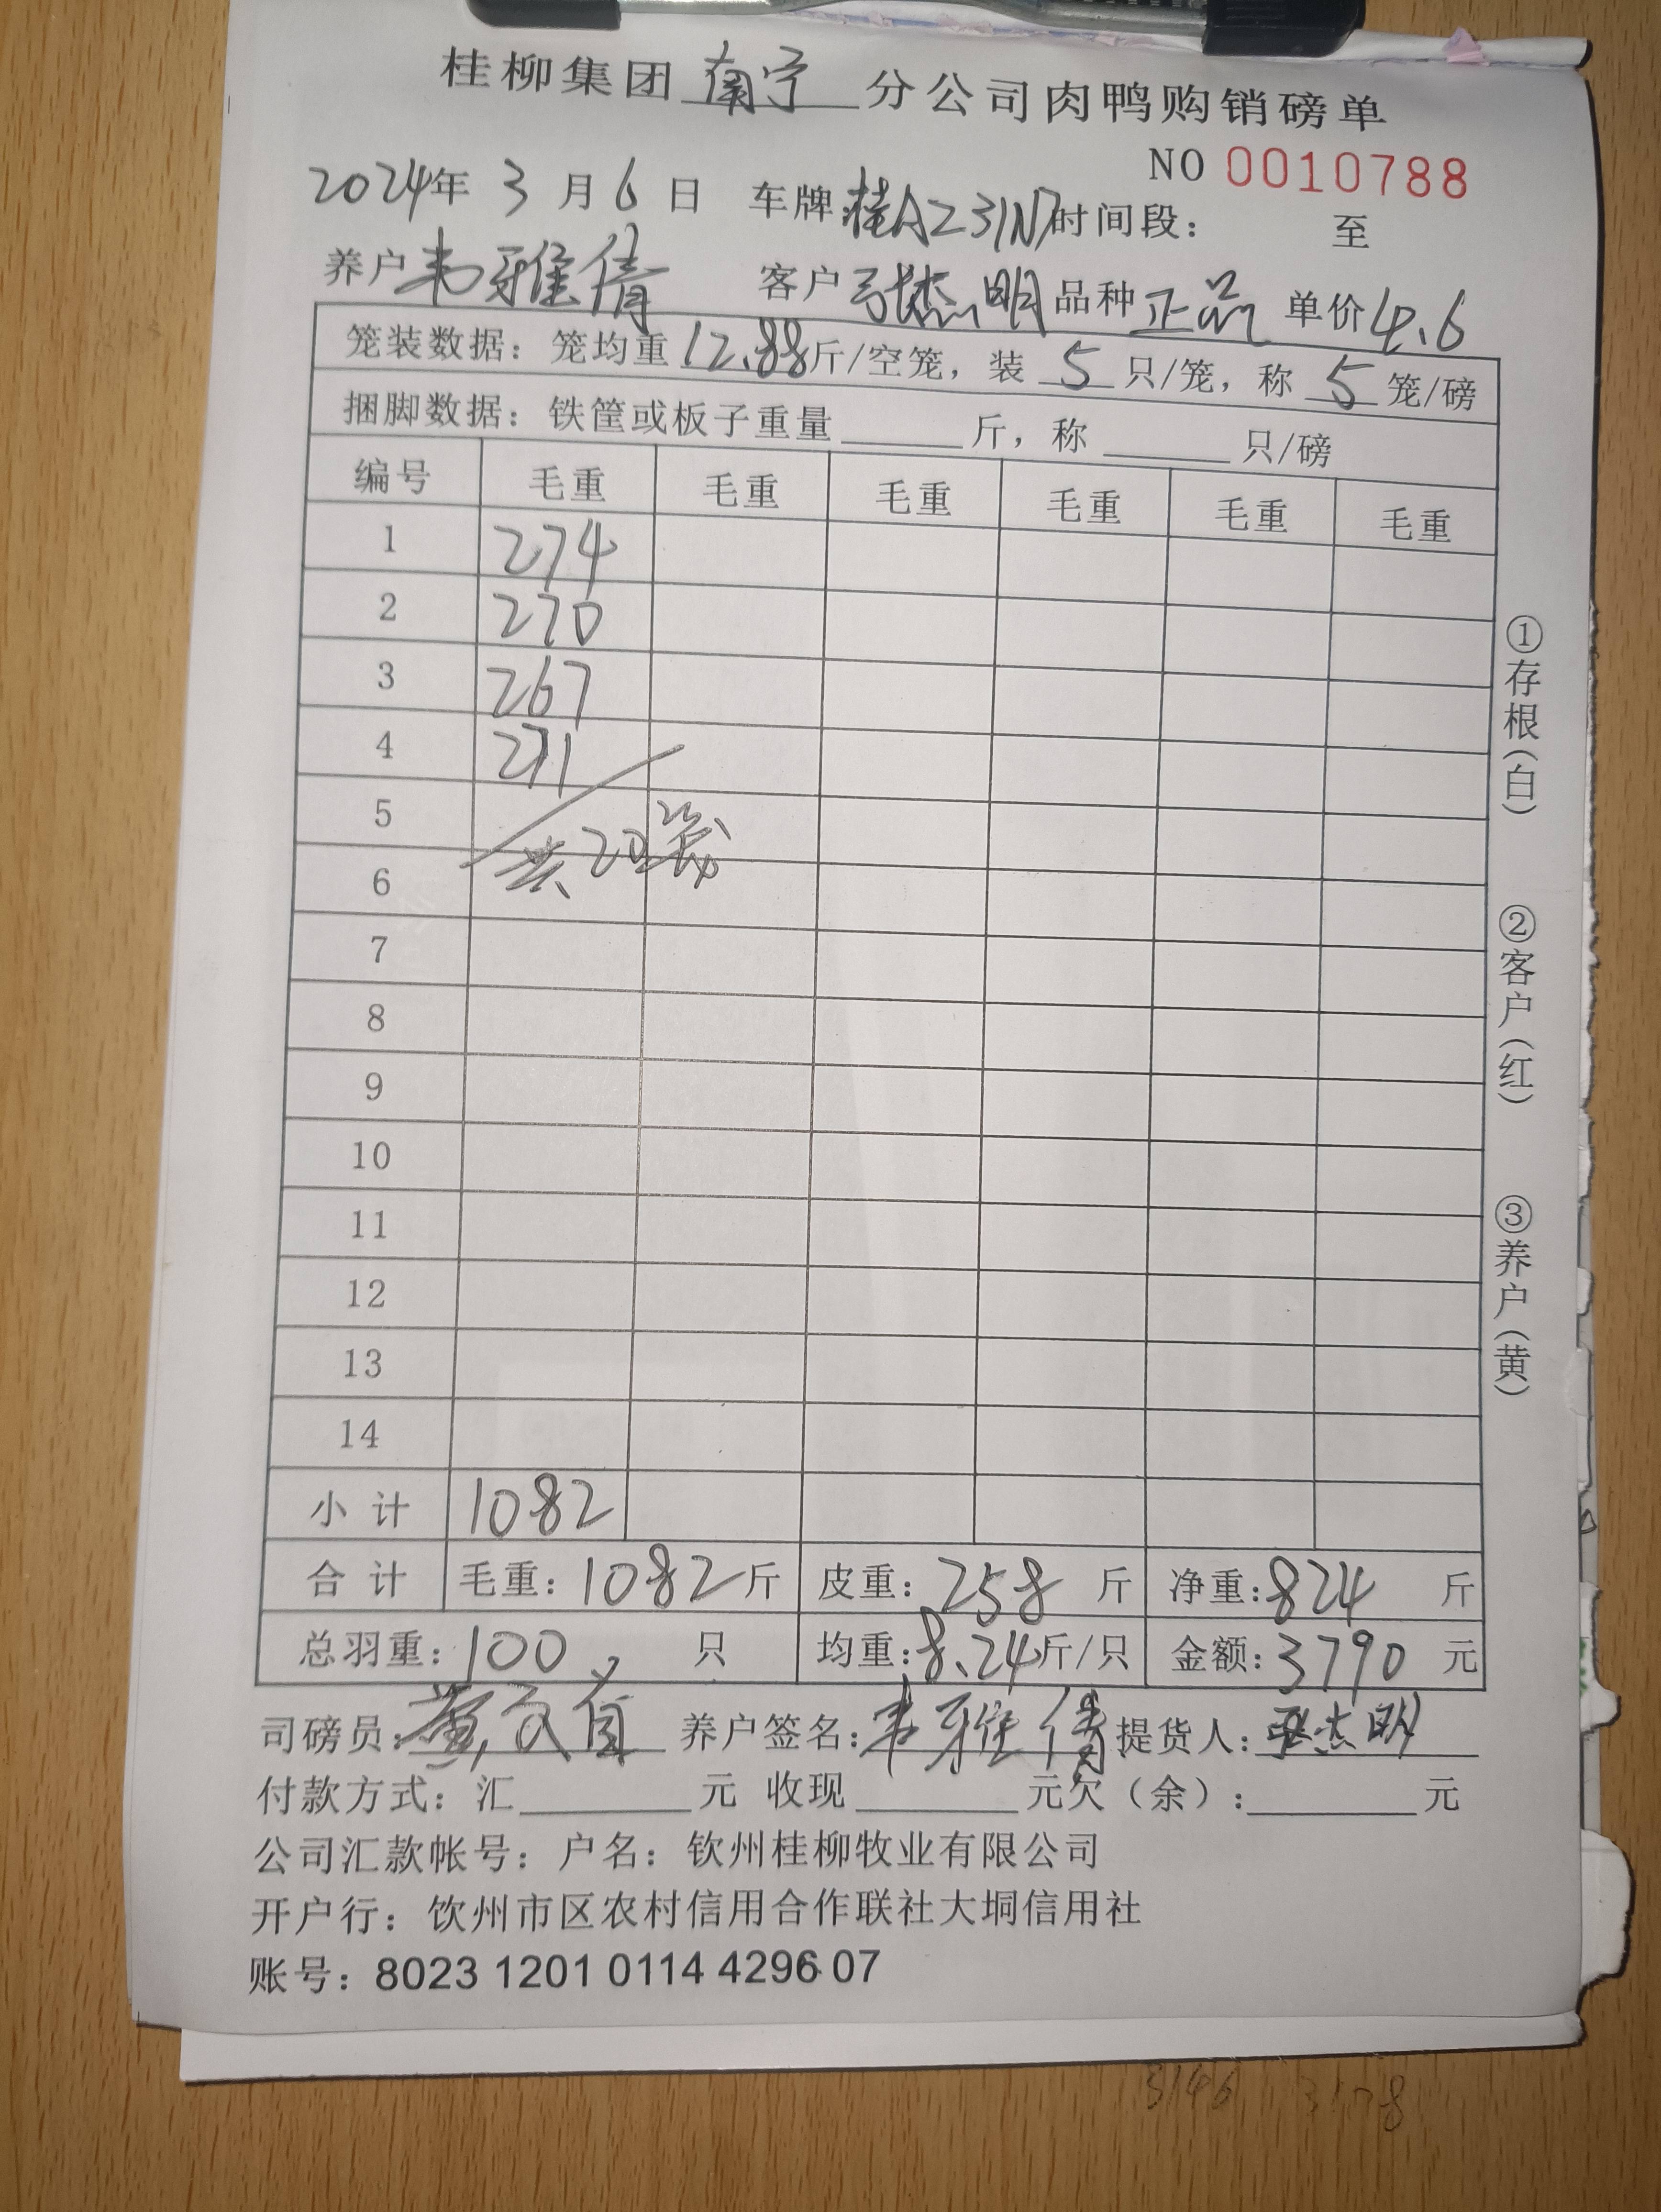 桂柳集团南宁分公司肉鸭购销磅单
NO 0010788
2024年 3 月 6 日 车牌桂AZ31N7时间段: 至
养户韦雅倩 客户张杰明品种正品 单价4.6
笼装数据:笼均重12.88斤/空笼,装 5 只/笼,称 5 笼/磅
捆脚数据:铁筐或板子重量______斤,称______只/磅
编号 毛重 毛重 毛重 毛重 毛重 毛重
1 274
2 270
3 267
4 271
5
共20笼
6
7
8
9
10
11
12
13
14
小 计 1082
合 计 毛重:1082斤 皮重:258 斤 净重:824 斤
总羽重:100 只 均重:8.24斤/只 金额:3790 元
司磅员:黄 养户签名:韦雅倩 提货人:张杰明
付款方式:汇________元 收现________元欠(余):________元
公司汇款帐号:户名:钦州桂柳牧业有限公司
开户行:饮州市区农村信用合作联社大垌信用社
账号:8023 1201 0114 4296 07
①存根(白)
②客户(红)
③养户(黄)
3146 3178